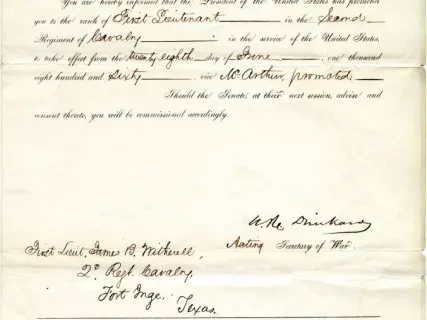 You are hereby informed that the President of the United States has promoted
you to the rank of First Lieutenant in the Second
Regiment of Cavalry in the service of the United States,
to take effect from the twenty eighth day of June, one thousand
eight hundred and Sixty, vice McArthur, promoted
Should the Senate, at their next session, advise and
consent thereto, you will be commissioned accordingly.
W. R. Drinkard
Acting Secretary of War.
First Lieut. James B. Witherell,
2d Regt. Cavalry,
Fort Inge.
Texas.